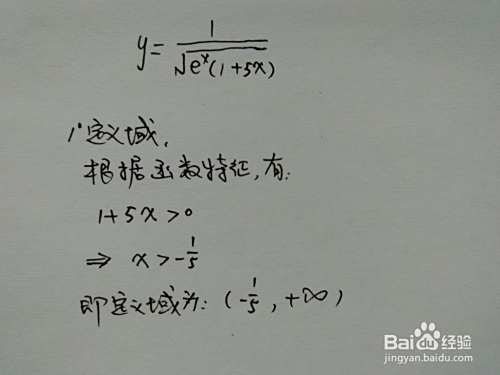 y=1/√(eˣ(1+5x))
1°定义域,
根据函数特征,有:
1+5x>0
⇒ x>-1/5
即定义域为:(-1/5,+∞)
Baidu经验
jingyan.baidu.com